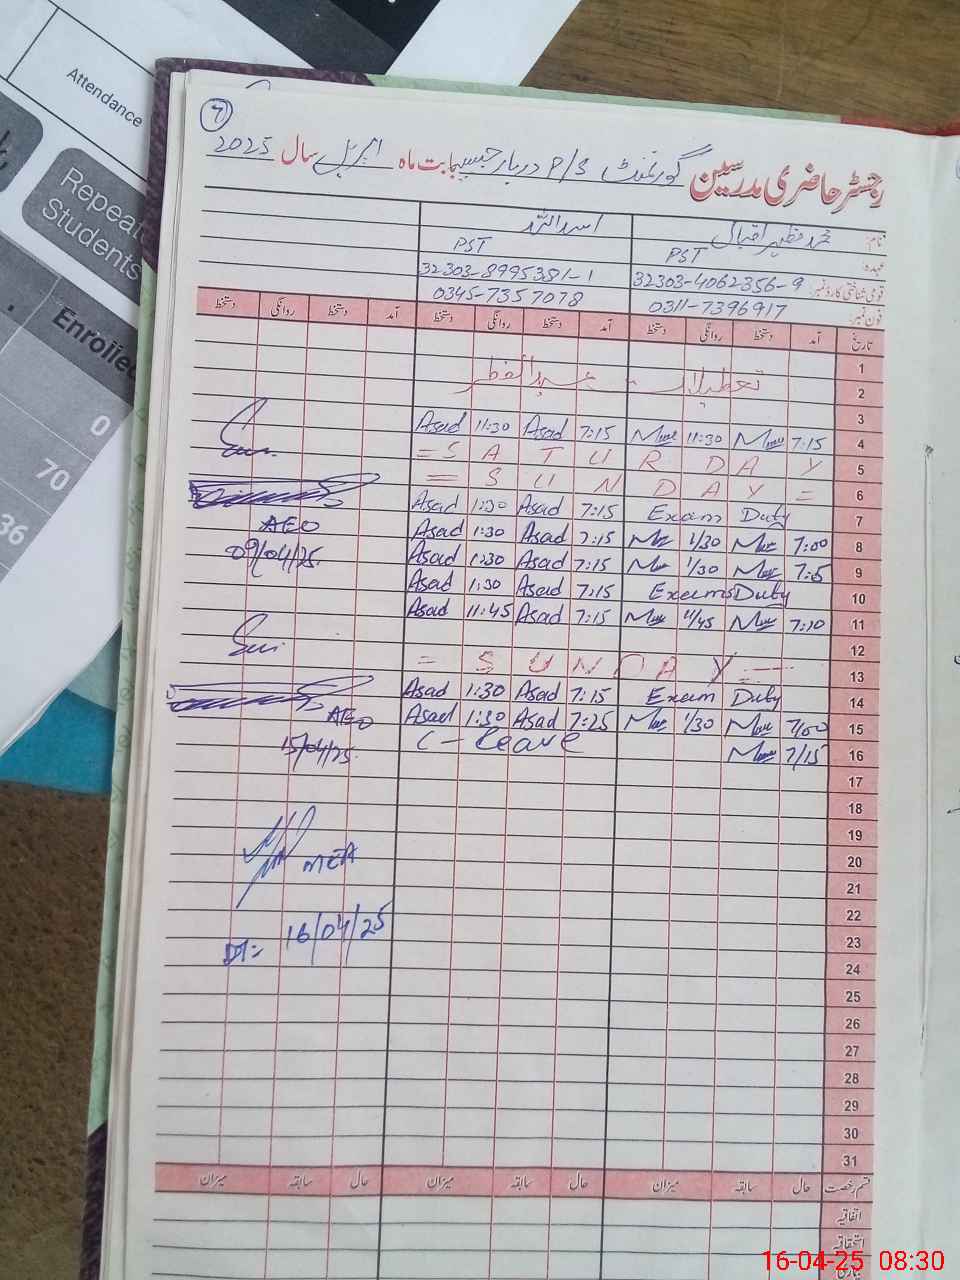 Attendance
Repeat
Students
Enrolled
0
70
36
7
رجسٹر حاضری مدرسین گورنمنٹ P/S دربار بابت ماہ اپریل سال 2025
نام: محمد مظہر اقبال اسد اللہ
عہدہ: PST PST
قومی شناختی کارڈ نمبر: 32303-4062356-9 32303-8995381-1
فون نمبر: 0311-7396917 0345-7357078
تاریخ آمد دستخط روانگی دستخط آمد دستخط روانگی دستخط آمد دستخط روانگی دستخط
1
2 تعطیلات - عیدالفطر
3
4 7:15 11:30 7:15 Asad 11:30 Asad
5 = S A T U R D A Y
6 = S U N D A Y =
7 Exam Duty 7:15 Asad 1:30 Asad
8 7:00 1/30 7:15 Asad 1:30 Asad
9 7:5 1/30 7:15 Asad 1:30 Asad
10 Exams Duty 7:15 Asad 1:30 Asad
11 7:10 11/45 7:15 Asad 11:45 Asad
12
13 = S U N D A Y =
14 Exam Duty 7:15 Asad 1:30 Asad
15 7/00 1/30 7:25 Asad 1:30 Asad
16 7/15 C-Leave
17
18
19
20
21
22
23
24
25
26
27
28
29
30
31
AEO
09/04/25
AEO
15/04/25
MEA
DT:- 16/04/25
قسم رخصت حال سابقہ میزان حال سابقہ میزان حال سابقہ میزان
اتفاقیہ
استحقاقیہ
بیماری
16-04-25 08:30